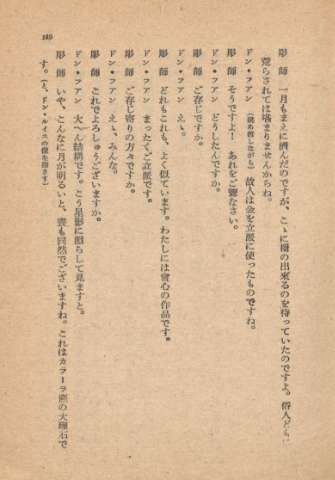 189
彫　師　一月もまえに濟んだのですが、こゝに柵の出來るのを待っていたのですよ。俗人どもに
荒らされては堪まりませんからね。
ドン・フアン　故人は金を立派に使ったものですね。
彫　師　そうですよ！　あれをご覽なさい。
ドン・フアン　どうしたんですか。
彫　師　ご存じですか。
ドン・フアン　えゝ。
彫　師　どれもこれも、よく似ています。わたしには會心の作品です。
ドン・フアン　まったくご立派です。
彫　師　ご存じ寄りの方々ですか。
ドン・フアン　えゝ、みんな。
彫　師　これでよろしゅうございますか。
ドン・フアン　大へん結構です。こう星影に照らして見ますと。
彫　師　いや、こんなに月が明るいと、晝も同然でございますね。これはカラーラ産の大理石で
す。（と、ドン・ルイスの像を指さす）